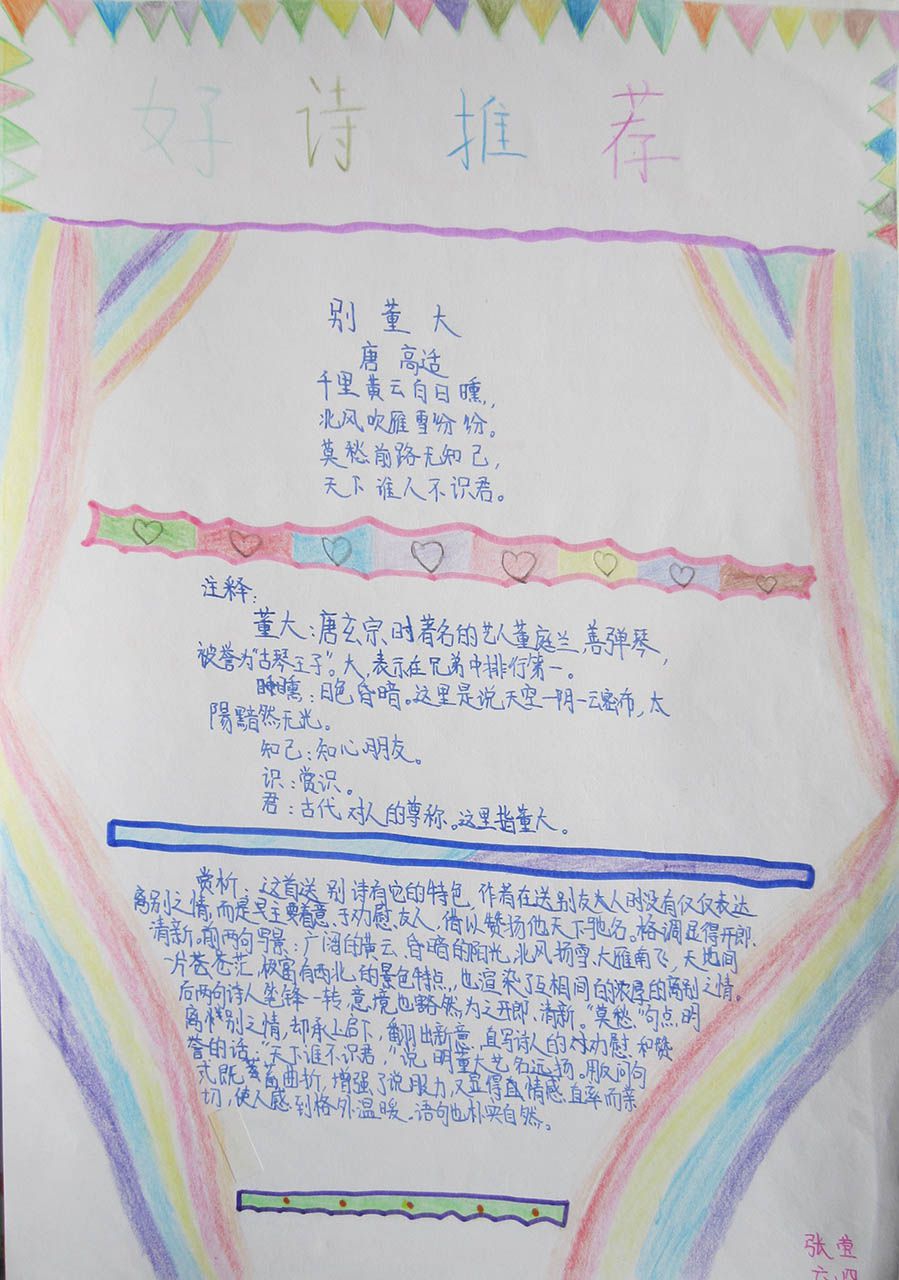 好诗推荐
别董大
唐 高适
千里黄云白日曛，
北风吹雁雪纷纷。
莫愁前路无知己，
天下谁人不识君。
注释：
董大：唐玄宗时著名的艺人董庭兰，善弹琴，
被誉为“古琴王子”。大，表示在兄弟中排行第一。
曛：日色昏暗。这里是说天空一阴一云密布，太
陽黯然无光。
知己：知心朋友。
识：赏识。
君：古代对人的尊称。这里指董大。
赏析：这首送别诗有它的特色，作者在送别友人时没有仅仅表达
离别之情，而是主要着意于劝慰友人，借以赞扬他天下驰名。格调显得开朗、
清新。前两句写景：广阔的黄云、昏暗的阳光，北风扬雪，大雁南飞，天地间
一片苍茫，极富有西北的景色特点，也渲染了互相间的浓厚的离别之情。
后两句诗人笔锋一转，意境也豁然为之开朗、清新。“莫愁”句点明
离别之情，却承上启下，翻出新意，直写诗人的对劝慰和赞
誉的话。“天下谁不识君，”说明董大艺名远扬。用反问句
式既委曲折，增强了说服力，又显得直情感直率而亲
切，使人感到格外温暖。语句也朴实自然。
张萱
六.四